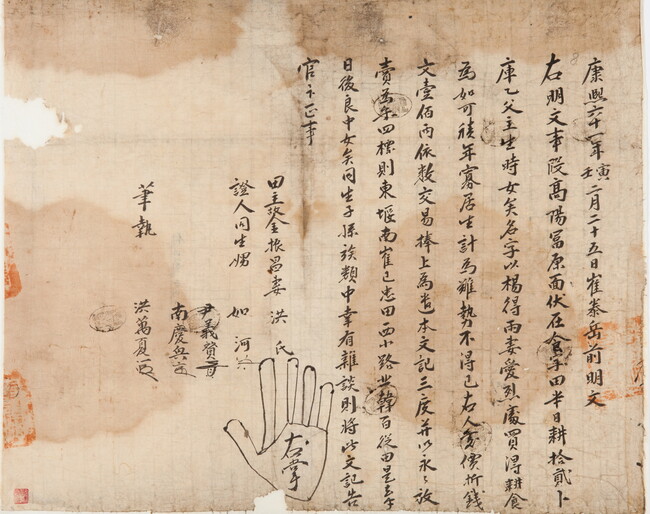 康熙六十一年壬寅二月二十五日崔泰岳前明文
右明文事段高陽冨原面伏在金字田半日耕拾貳卜
庫乙父主生時女矣名字以楊得雨妻愛烈處買得耕食
為如可積年寡居生計為難勢不得已右人處價折錢
文壹佰両依數交易捧上為遣本文記三度幷以永永放
賣為乎四標則東堰南崔已忠田西小路北韓百從田是乎
日後良中女矣同生子孫族類中幸有雜談則將此文記告
官卞正事
田主故金振昌妻 洪氏
證人同生娚 如河
尹義賛
南慶興
筆執 洪萬夏
右掌